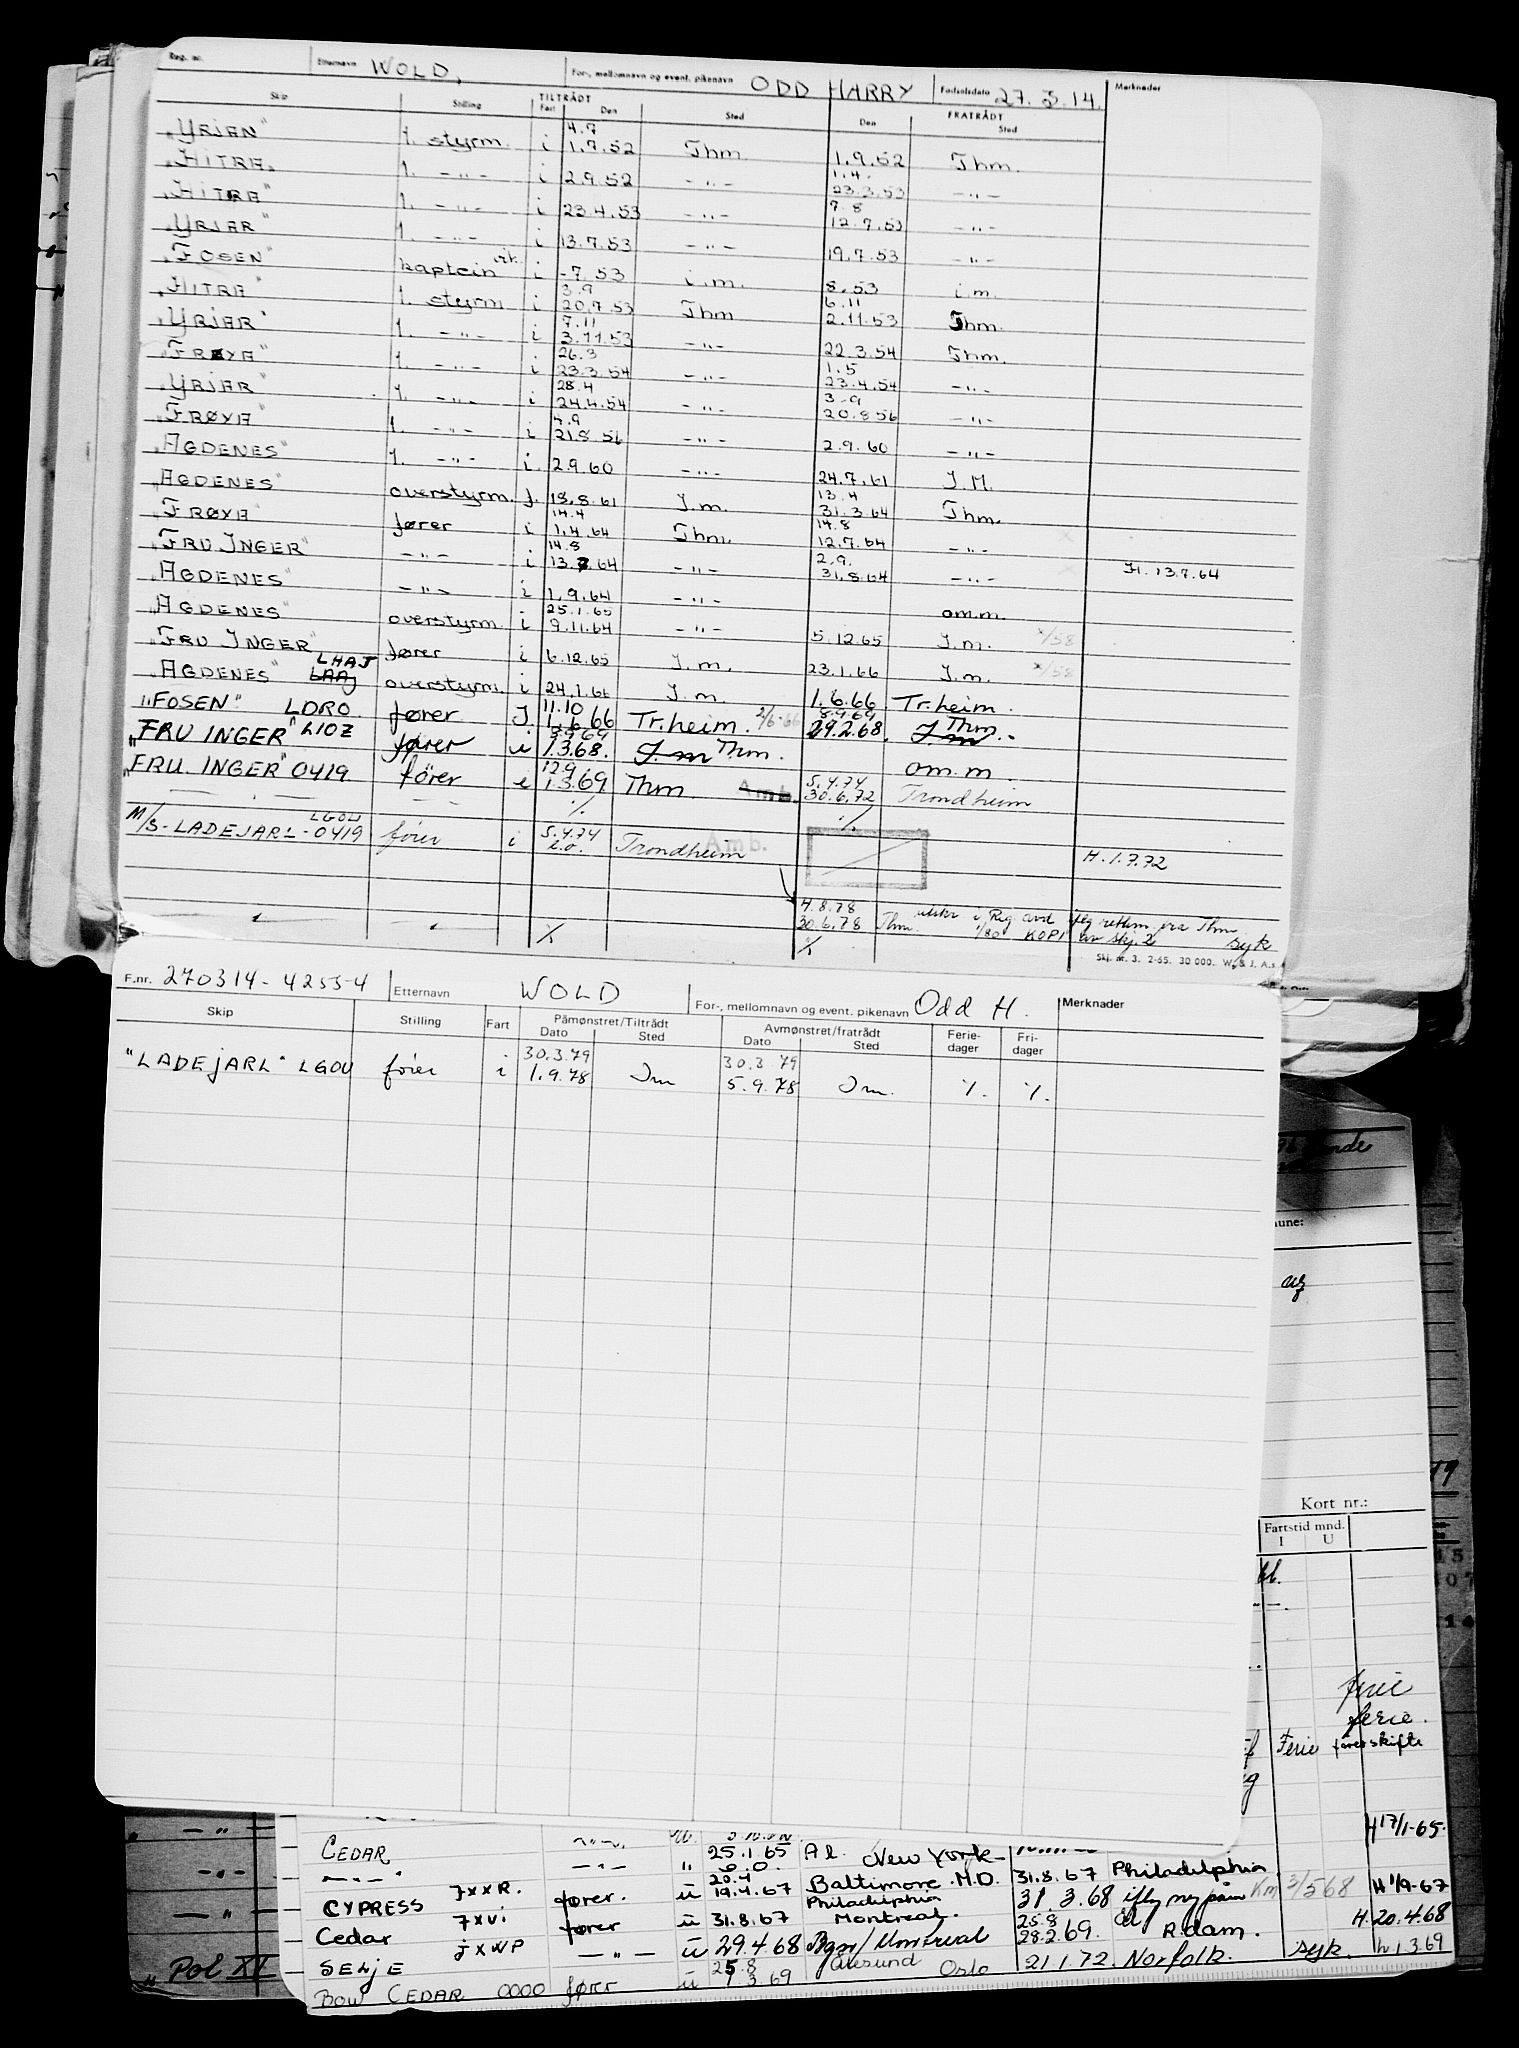 Reg. nr. Etternavn WOLD, For-, mellomnavn og event. pikenavn ODD HARRY Fødselsdato 27.3.14. Merknader
Skip Stilling TILTRÅDT Fart Den Sted FRATRÅDT Den Sted
4.7
"YRJAR" 1. styrm. i 1.7.52 Thm. 1.9.52 Thm.
1.4.
"HITRA" 1. -"- i 2.9.52 -"- 23.3.53 -"-
7.8
"HITRA" 1. -"- i 23.4.53 -"- 12.7.53 -"-
"YRJAR" 1. -"- i 13.7.53 -"- 19.7.53 -"-
"FOSEN" kaptein vik. i -7.53 i.m. 8.53 i.m.
3.9 6.11
"HITRA" 1. styrm i 20.7.53 Thm 2.11.53 Thm.
7.11
"YRJAR" 1. -"- i 3.11.53 -"- 22.3.54 Thm.
26.3 1.5
"FRØYA" 1. -"- i 23.3.54 -"- 23.4.54 -"-
28.4 3-9
"YRJAR" 1. -"- i 24.4.54 -"- 20.8.56 -"-
4.9
"FRØYA" 1. -"- i 21.8.56 -"- 2.9.60 -"-
"AGDENES" 1. -"- i. 2.9.60 -"- 24.7.61 J.M.
13.4
"AGDENES" overstyrm. J. 18.8.61 J.m. 31.3.64 Thm.
14.4 14.8
"FRØYA" fører i 1.4.64 Thm. 12.7.64 -"-
14.8 2.9.
"FRU INGER" -"- i 13.7.64 -"- 31.8.64 -"- H. 13.7.64
"AGDENES" -"- i 1.9.64 -"- om.m.
25.1.65
"AGDENES" overstyrm. i 9.11.64 -"- 5.12.65 J.m. x/58
"FRU INGER" fører i 6.12.65 J.m. 23.1.66 J.m. x/58
"AGDENES" LHAJ overstyrm. i 24.1.66 J.m. 1.6.66 Tr.heim.
11.10 8.9.69
"FOSEN" LDRO fører J 1.6.66 Tr.heim. 2/6-66 29.2.68. J.m Thm.
8.9.69
"FRU INGER" LIOZ fører i 1.3.68. J.m Thm. om.m.
12.9 5.4.74
"FRU. INGER" 0419 fører i 1.3.69 Thm Amb. 30.6.72 Trondheim
% %
LGOU 5.4.74
M/S- LADEJARL-0419 fører i e.o. Trondheim Amb. H.1.7.72
4.8.78
30.6.78 Thm utskr i Reg. avd iflg rettsm fra Thm
1/80 KOPI av skj. 2 syk
% %
Skj. nr. 3. 2-65. 30 000. W. & J. A.s.
F.nr. 270314-42554 Etternavn WOLD For-, mellomnavn og event. pikenavn Odd H. Merknader
Skip Stilling Fart Påmønstret/Tiltrådt Dato Sted Avmønstret/fratrådt Dato Sted Ferie-dager Fri-dager
30.3.79 30.3.79
"LADEJARL" LGOU fører i 1.9.78 Jm 5.9.78 Jm. %. %.
mune:
Kort nr.:
Fartstid mnd.
I U
ferie
ferie.
Ferie førerskifte
H 17/1-65.
CEDAR -"- 25.1.65 Al. New York
-"- -"- " e.o.
20.4
CYPRESS JXXR. fører. u 19.4.67 Baltimore. M.D. 31.8.67 Philadelphia. H 1/9-67
Cedar JXVI fører u 31.8.67 Philadelphia Montreal. 31.3.68 iflg ny påm 3/568 H.20.4.68
25.8
SELJE JXWP -"- u 29.4.68 Bgn/Montreal 28.2.69. R.dam. h.1.3.69
25.8
BOW CEDAR 0000 fører u 1.3.69 Ålesund Oslo 21.1.72. Norfolk. syk.
Pol XI